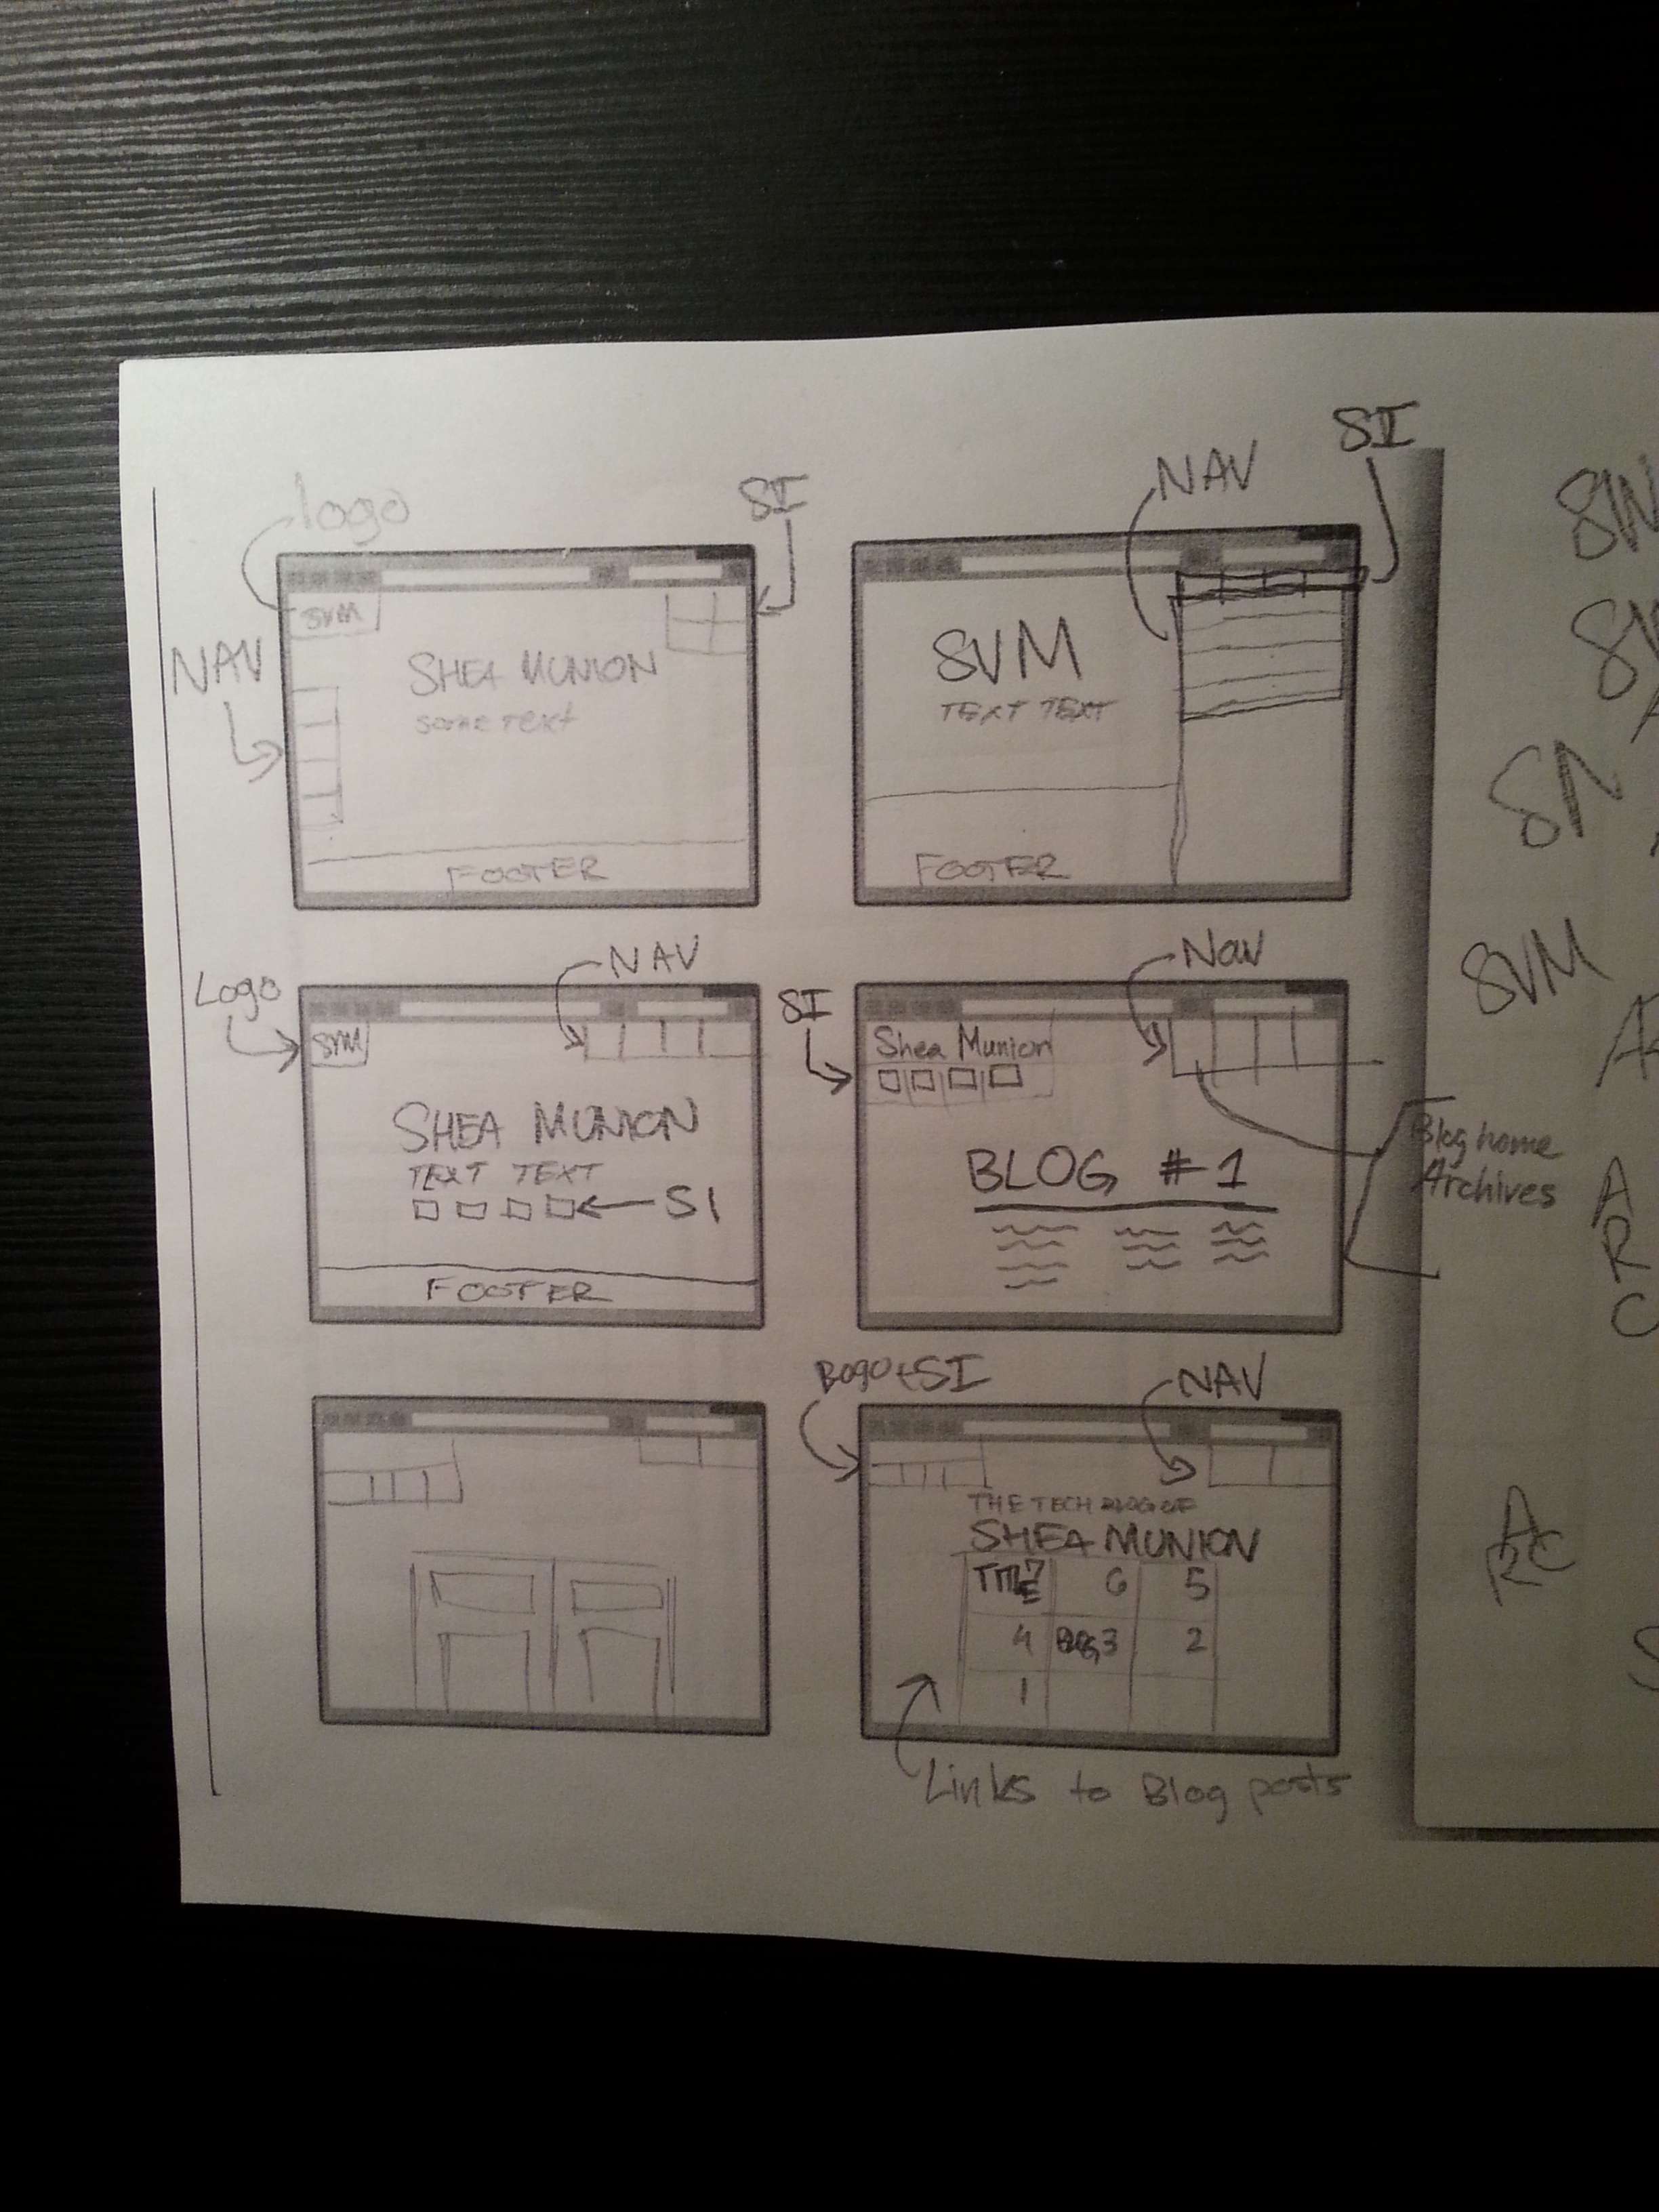 logo
SI
NAV
SVM
SHEA MUNION
SOME TEXT
FOOTER
NAV
SI
SVM
TEXT TEXT
FOOTER
Logo
NAV
SVM
SHEA MUNION
TEXT TEXT
SI
FOOTER
SI
Nav
Shea Munion
BLOG #1
Blog home
Archives
SI
NAV
THE TECH BLOG OF
SHEA MUNION
TITLE 7 6 5
4 3 2
1
Links to Blog posts
SVM
A
R
C